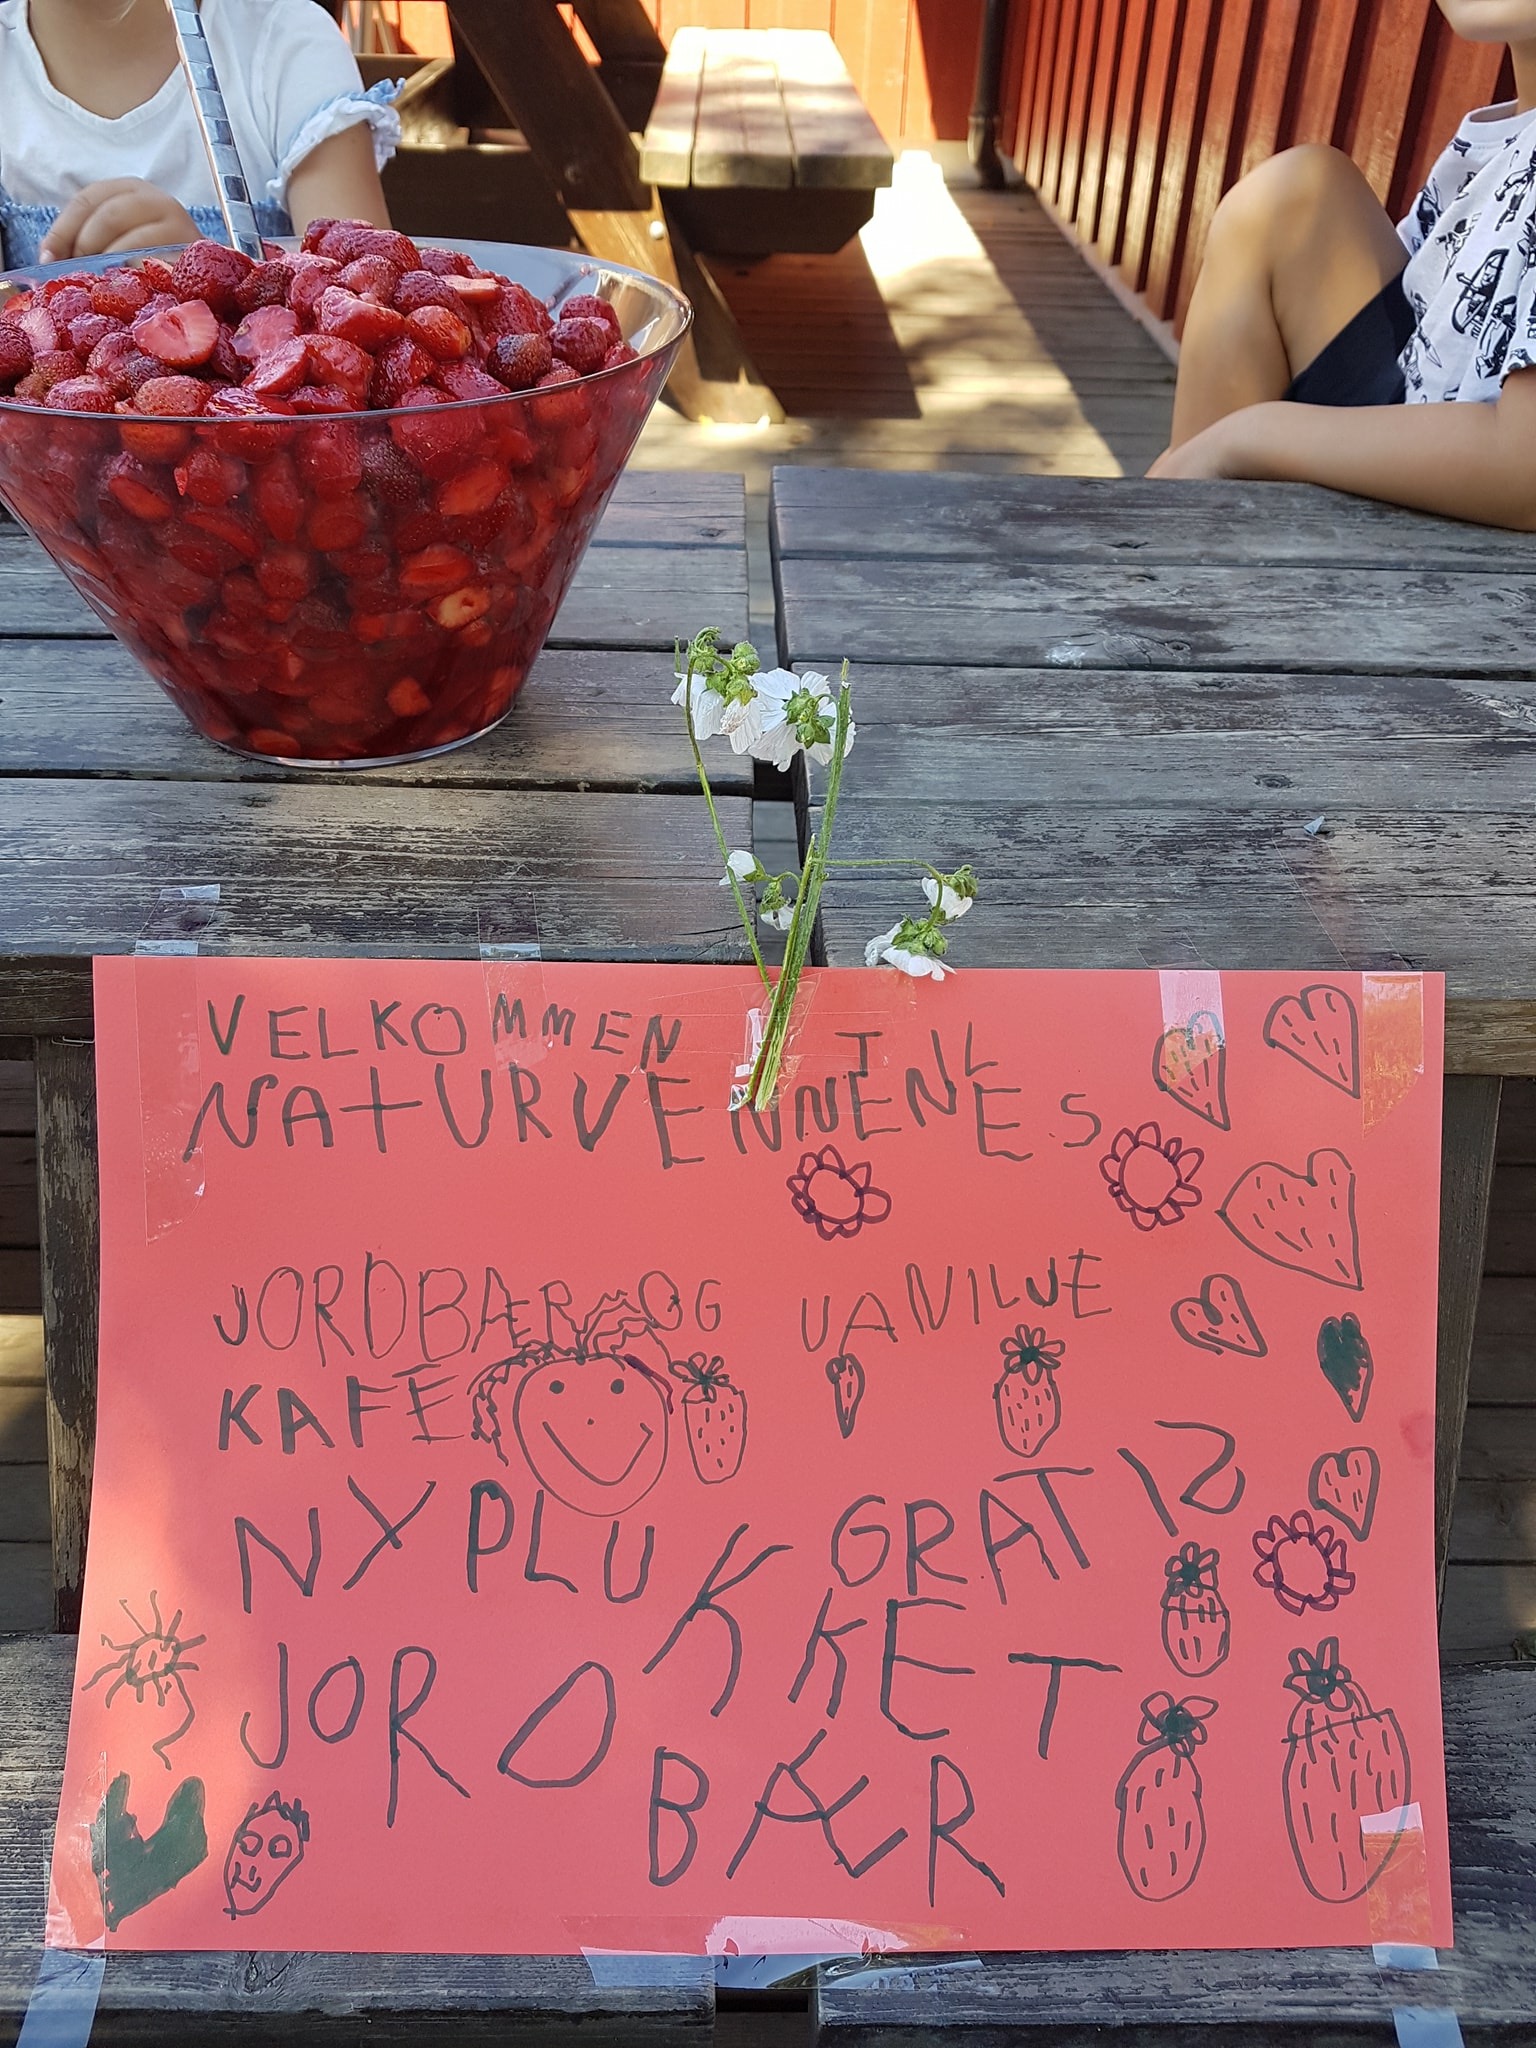 VELKOMMEN TIL
NATURVENNENES
JORDBÆR OG VANILJE
KAFE
NYPLUKKET GRATIS
JORDBÆR